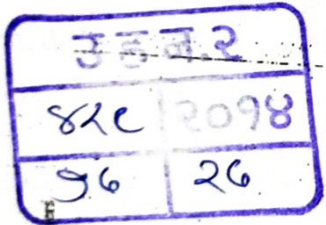 उ ह न. २
४२८ २०१४
१६ २६